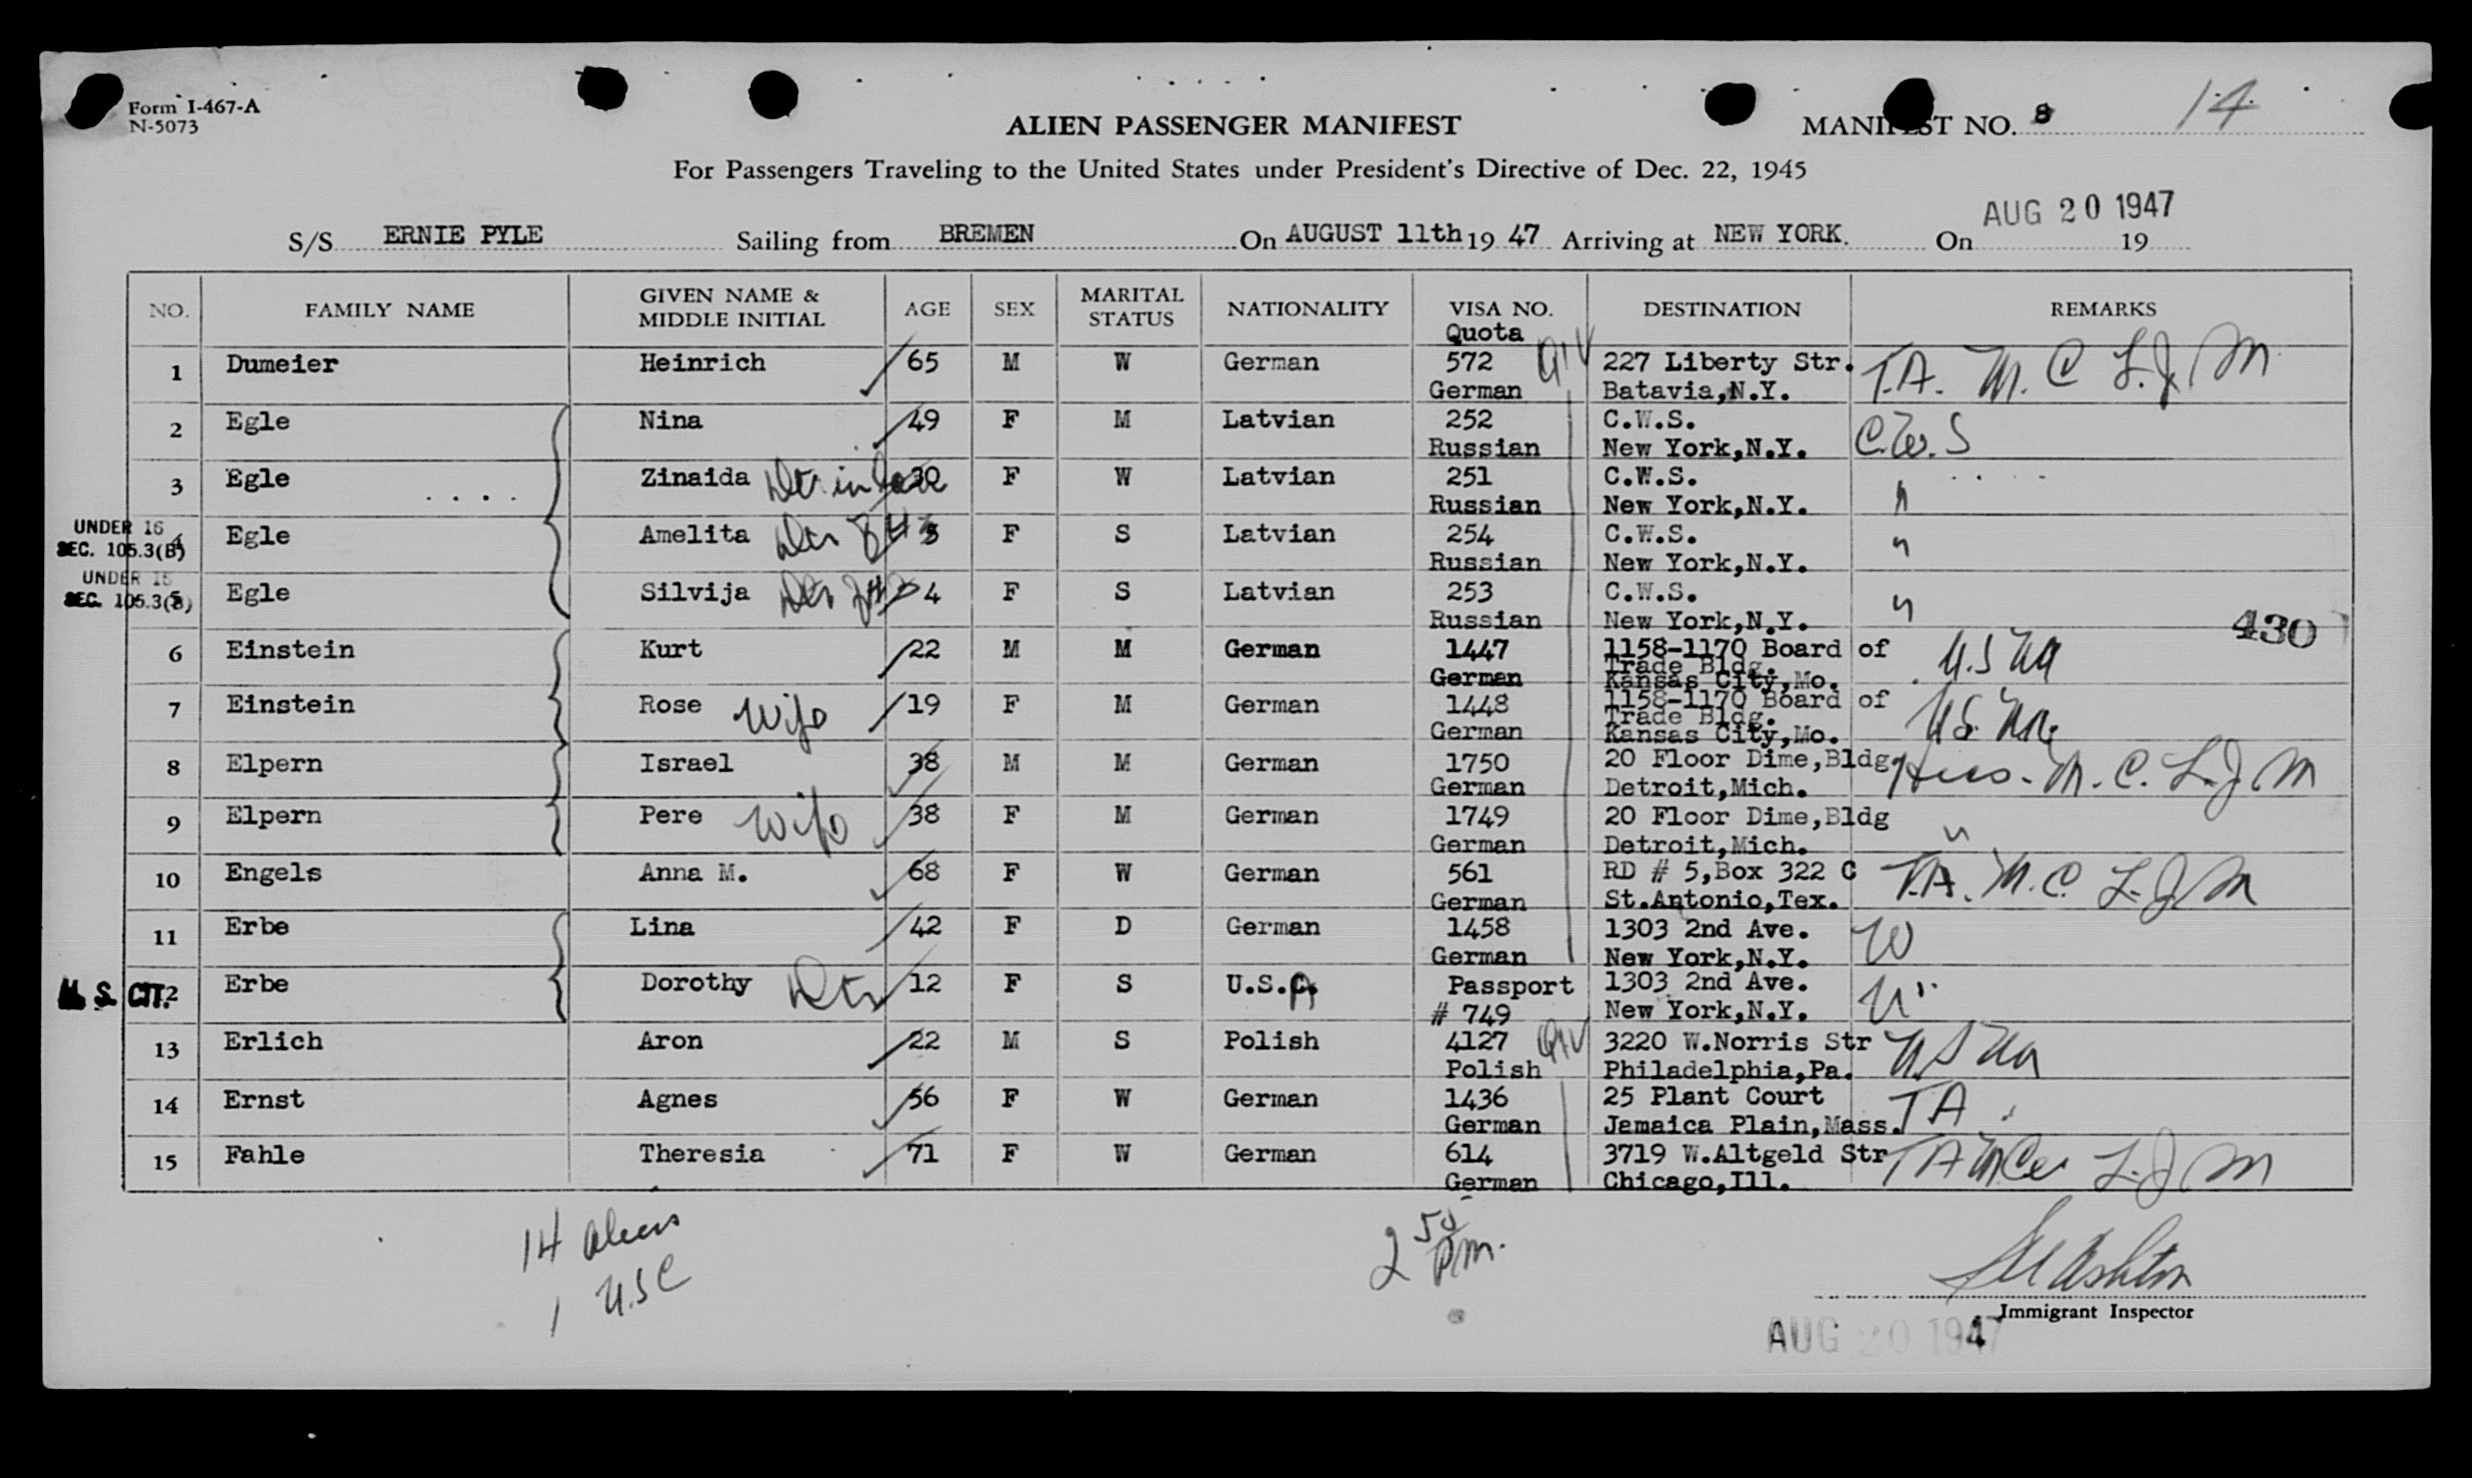 Form I-467-A
N-5073
14
ALIEN PASSENGER MANIFEST
MANIFEST NO. 8
For Passengers Traveling to the United States under President's Directive of Dec. 22, 1945
AUG 20 1947
S/S ERNIE PYLE Sailing from BREMEN On AUGUST 11th 19 47 Arriving at NEW YORK. On 19
NO. FAMILY NAME GIVEN NAME & MIDDLE INITIAL AGE SEX MARITAL STATUS NATIONALITY VISA NO. DESTINATION REMARKS
Quota
1 Dumeier Heinrich 65 M W German 572 QIV 227 Liberty Str. T.A. M. C L.J. M
German Batavia,N.Y.
2 Egle Nina 49 F M Latvian 252 C.W.S. C.W.S
Russian New York,N.Y.
3 Egle Zinaida 30 F W Latvian 251 C.W.S. "
Russian New York,N.Y.
UNDER 16
SEC. 105.3(B)
4 Egle Amelita 5 F S Latvian 254 C.W.S. "
Russian New York,N.Y.
UNDER 16
SEC. 105.3(B)
5 Egle Silvija 4 F S Latvian 253 C.W.S. "
Russian New York,N.Y.
430
6 Einstein Kurt 22 M M German 1447 1158-1170 Board of
Trade Bldg.
German Kansas City,Mo.
7 Einstein Rose Wife 19 F M German 1448 1158-1170 Board of
Trade Bldg.
German Kansas City,Mo.
8 Elpern Israel 38 M M German 1750 20 Floor Dime,Bldg Hias - M. C. L.J M
German Detroit,Mich.
9 Elpern Pere Wife 38 F M German 1749 20 Floor Dime,Bldg "
German Detroit,Mich.
10 Engels Anna M. 68 F W German 561 RD # 5,Box 322 C T.A. M.C. L.J M
German St.Antonio,Tex.
11 Erbe Lina 42 F D German 1458 1303 2nd Ave. W
German New York,N.Y.
U.S. CIT.
12 Erbe Dorothy Dtr 12 F S U.S.A. Passport 1303 2nd Ave. "
# 749 New York,N.Y.
13 Erlich Aron 22 M S Polish 4127 QIV 3220 W.Norris Str
Polish Philadelphia,Pa.
14 Ernst Agnes 56 F W German 1436 25 Plant Court TA
German Jamaica Plain,Mass.
15 Fahle Theresia 71 F W German 614 3719 W.Altgeld Str T A M C L.J M
German Chicago,Ill.
14 aliens
1 USC
2 50 P.M.
Ashton
Immigrant Inspector
AUG 20 1947